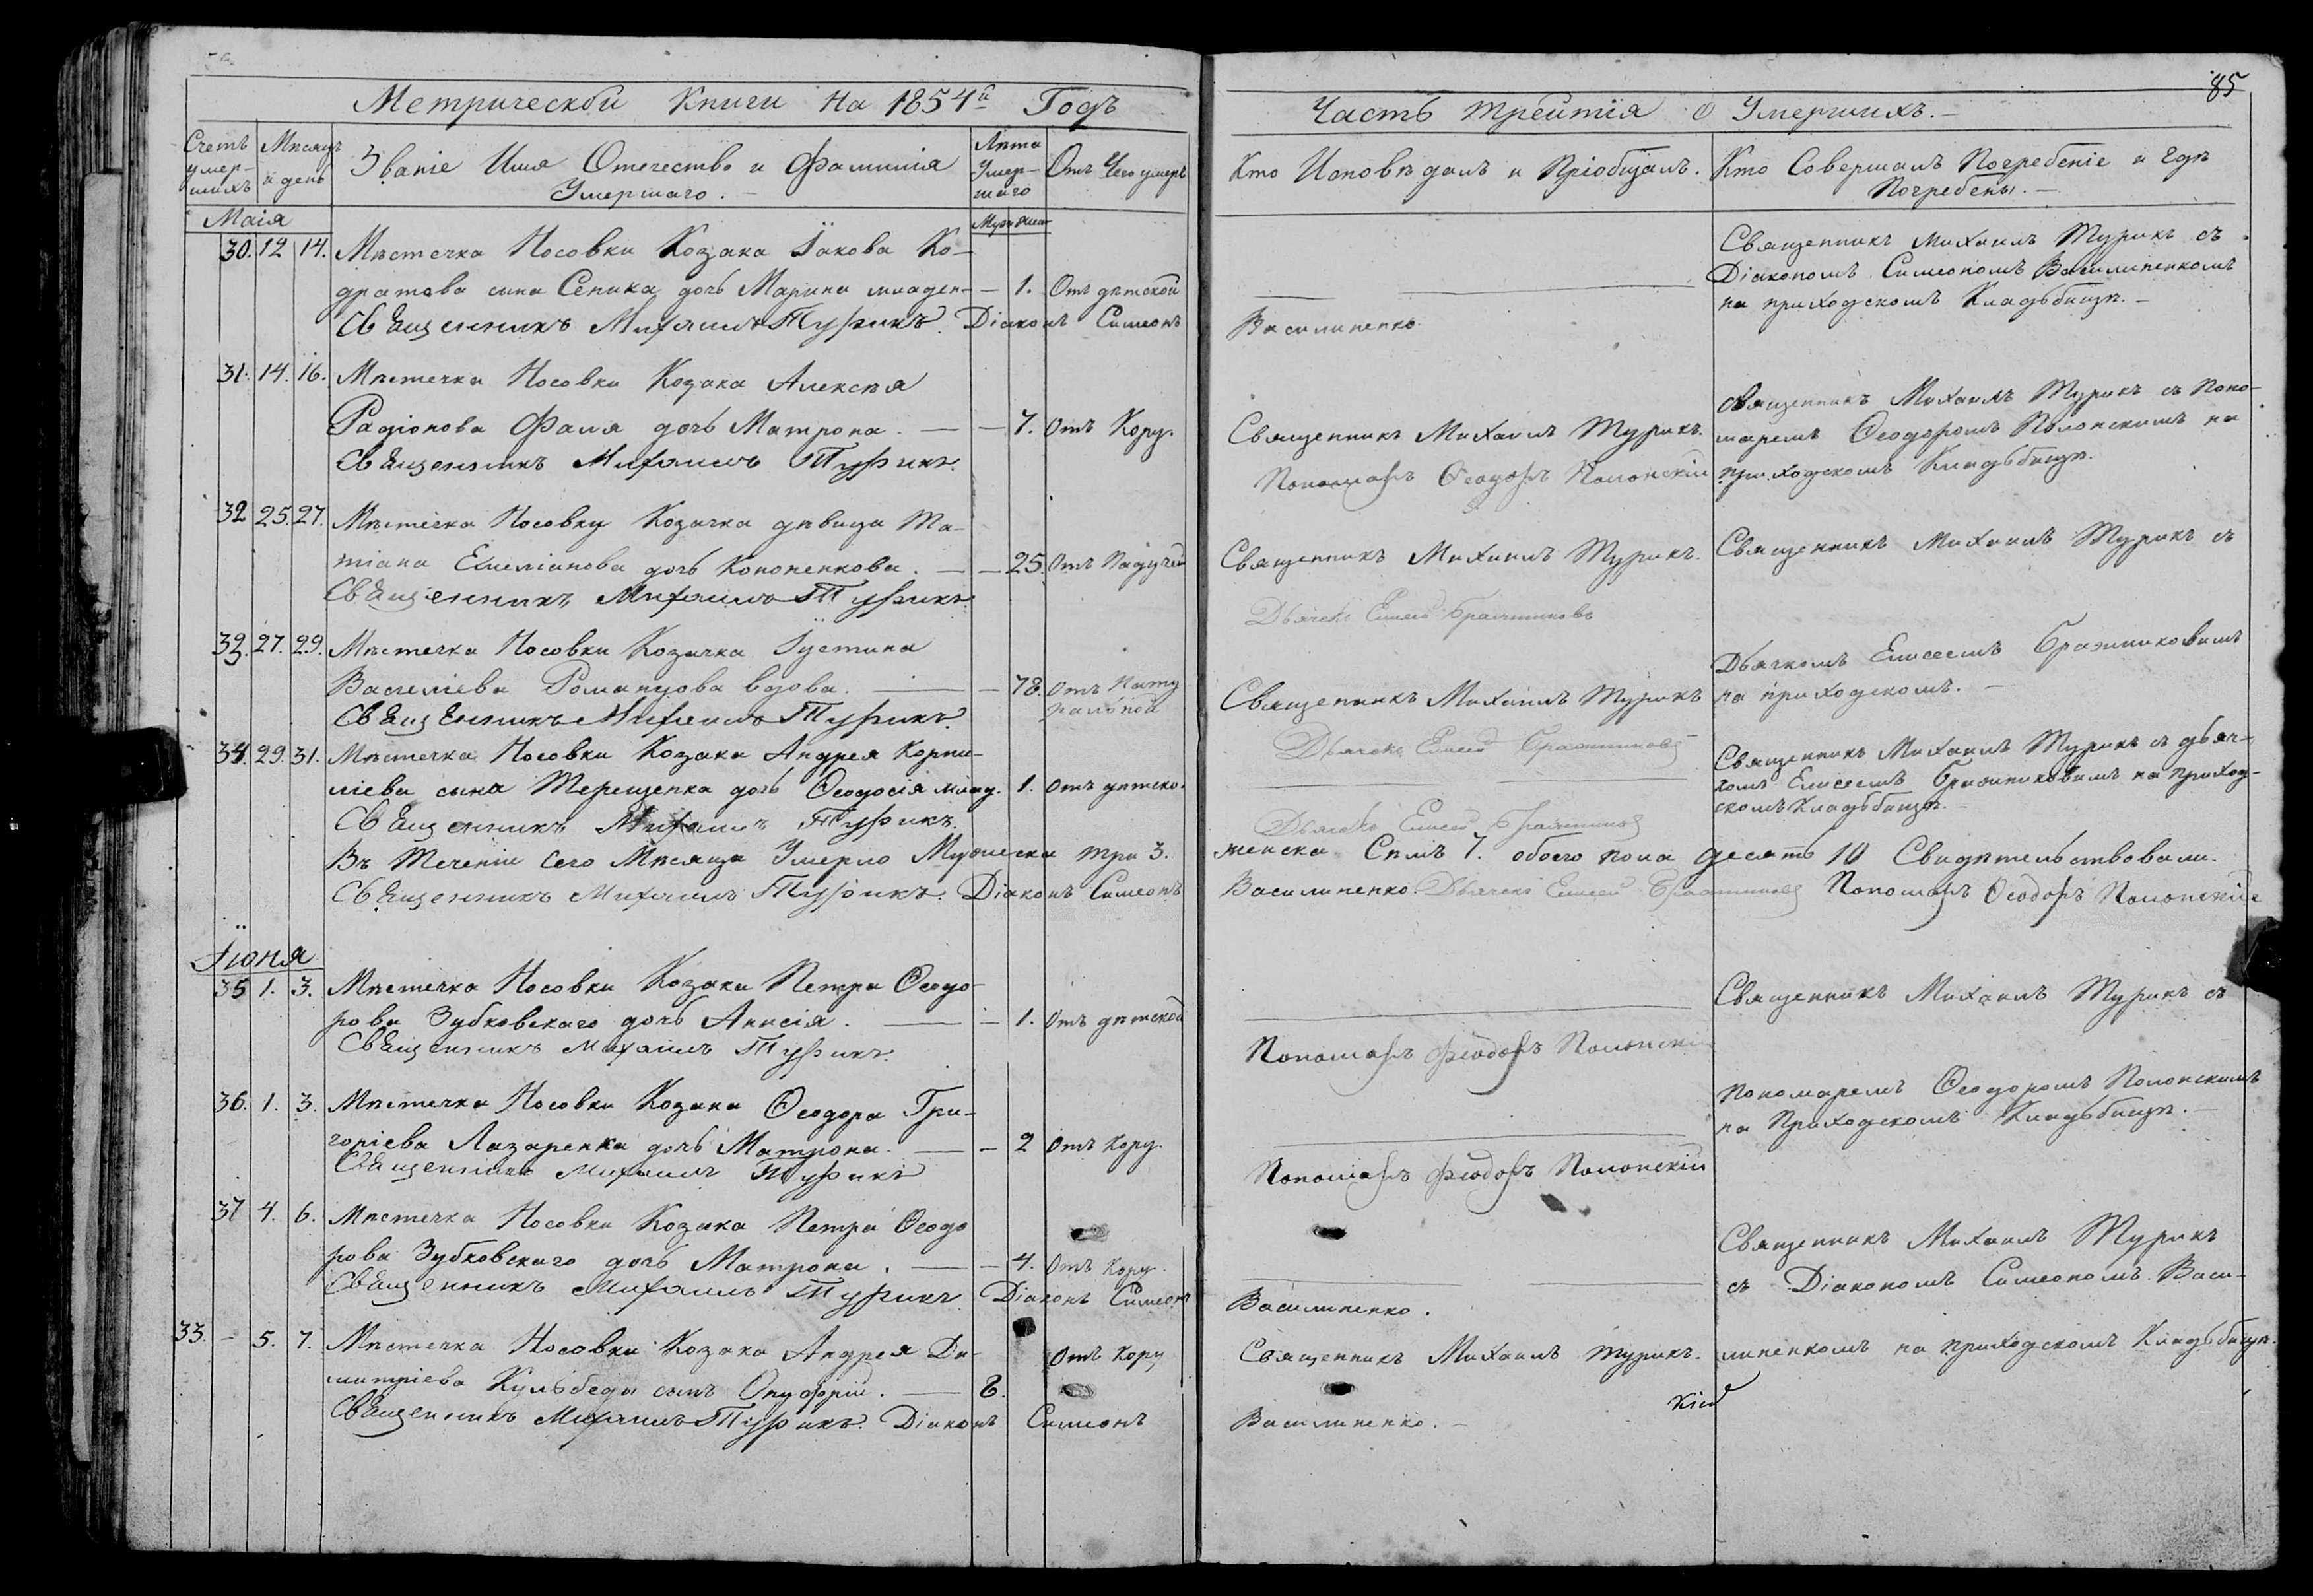 85
Метрической Книги на 1854й Годъ
Часть третїя о Умершихъ.
Счетъ умер-шихъ
Мѣсяцъ и день
Званіе Имя Отечество и Фамилія
Умершаго.
Лѣта Умер-шаго
Отъ Чего умеръ
Кто Исповѣдалъ и Пріобщалъ.
Кто Совершалъ Погребеніе и гдѣ
Погребены.
Маія
Муж. жен
30. 12 14. Мѣстечка Носовки Козака Іакова Ко-
дратова сина Сеника дочь Марина младен- — 1. Отъ дѣтской
Священникъ Михаилъ Турикъ. Діаконъ Симеонъ
Василиненко
Священникъ Михаилъ Турикъ съ
Діакономъ Симеономъ Василиненкомъ
на приходскомъ Кладъбищѣ.
31. 14. 16. Мѣстечка Носовки Козака Алексѣя
Радіонова Фаля дочь Матрона. — 7. отъ Кору.
Священникъ Михаилъ Турикъ.
Священникъ Михаилъ Турикъ.
Пономарь Ѳеодоръ Полонскій
Священникъ Михаилъ Турикъ съ Поно-
маремъ Ѳеодоромъ Полонскимъ на
приходскомъ Кладъбищѣ.
32 25. 27. Мѣстечка Носовку Козачка дѣвица Та-
тіана Емеліанова дочь Кононенкова. — 25. отъ Падучей
Священникъ Михаилъ Турикъ.
Священникъ Михаилъ Турикъ.
Дьячекъ Елисей Бражниковъ
Священникъ Михаилъ Турикъ съ
33. 27. 29. Мѣстечка Носовки Козачка Іустина
Василіева Романцова вдова. — 78. отъ Нату
ралной
Священникъ Михаилъ Турикъ.
Священникъ Михаилъ Турикъ
Дьячекъ Елисей Бражниковъ
Дьячкомъ Елисеемъ Бражниковымъ
на приходскомъ.
34. 29. 31. Мѣстечка Носовки Козака Андрея Корни-
ліева сына Терещенка дочь Ѳеодосія млад. 1. отъ дѣтско.
Священникъ Михаилъ Турикъ.
Дьячекъ Елисей Бражниковъ
Священникъ Михаилъ Турикъ съ дьяч-
комъ Елисеемъ Бражниковымъ на приход-
скомъ Кладъбищѣ.
Въ Теченіи Сего Мѣсяца Умерло Мужеска три 3. женска Семъ 7. обоего пола десять 10 Свидѣтельствовали.
Священникъ Михаилъ Турикъ. Діаконъ Симеонъ Василиненко. Дьячекъ Елисей Бражниковъ Пономарь Ѳеодоръ Полонскій
Іюня
35 1. 3. Мѣстечка Носовки Козака Петра Ѳеодо-
рова Зубковскаго дочь Анисія. — 1. отъ дѣтской
Священникъ Михаилъ Турикъ.
Пономарь Ѳеодоръ Полонскій
Священникъ Михаилъ Турикъ съ
36. 1. 3. Мѣстечка Носовки Козака Ѳеодора Гри-
горіева Лазаренка дочь Матрона. — 2 отъ Кору.
Священникъ Михаилъ Турикъ
Пономарь Ѳеодоръ Полонскій
Пономаремъ Ѳеодоромъ Полонскимъ
на Приходскомъ Кладъбищѣ.
37 4. 6. Мѣстечка Носовки Козака Петра Ѳеодо
рова Зубковскаго дочь Матрона. — 4. отъ Кору.
Священникъ Михаилъ Турикъ Діаконъ Симеонъ
Василиненко.
Священникъ Михаилъ Турикъ
съ Діакономъ Симеономъ Васи-
33. — 5. 7. Мѣстечка Носовки Козака Андрея Ди-
митріева Кульбеды сынъ Онуфрій. — 6. отъ Кору
Священникъ Михаилъ Турикъ. Діаконъ Симеонъ
Священникъ Михаилъ Турикъ.
Василиненко.
линенкомъ на приходскомъ Кладъбищѣ.
кій